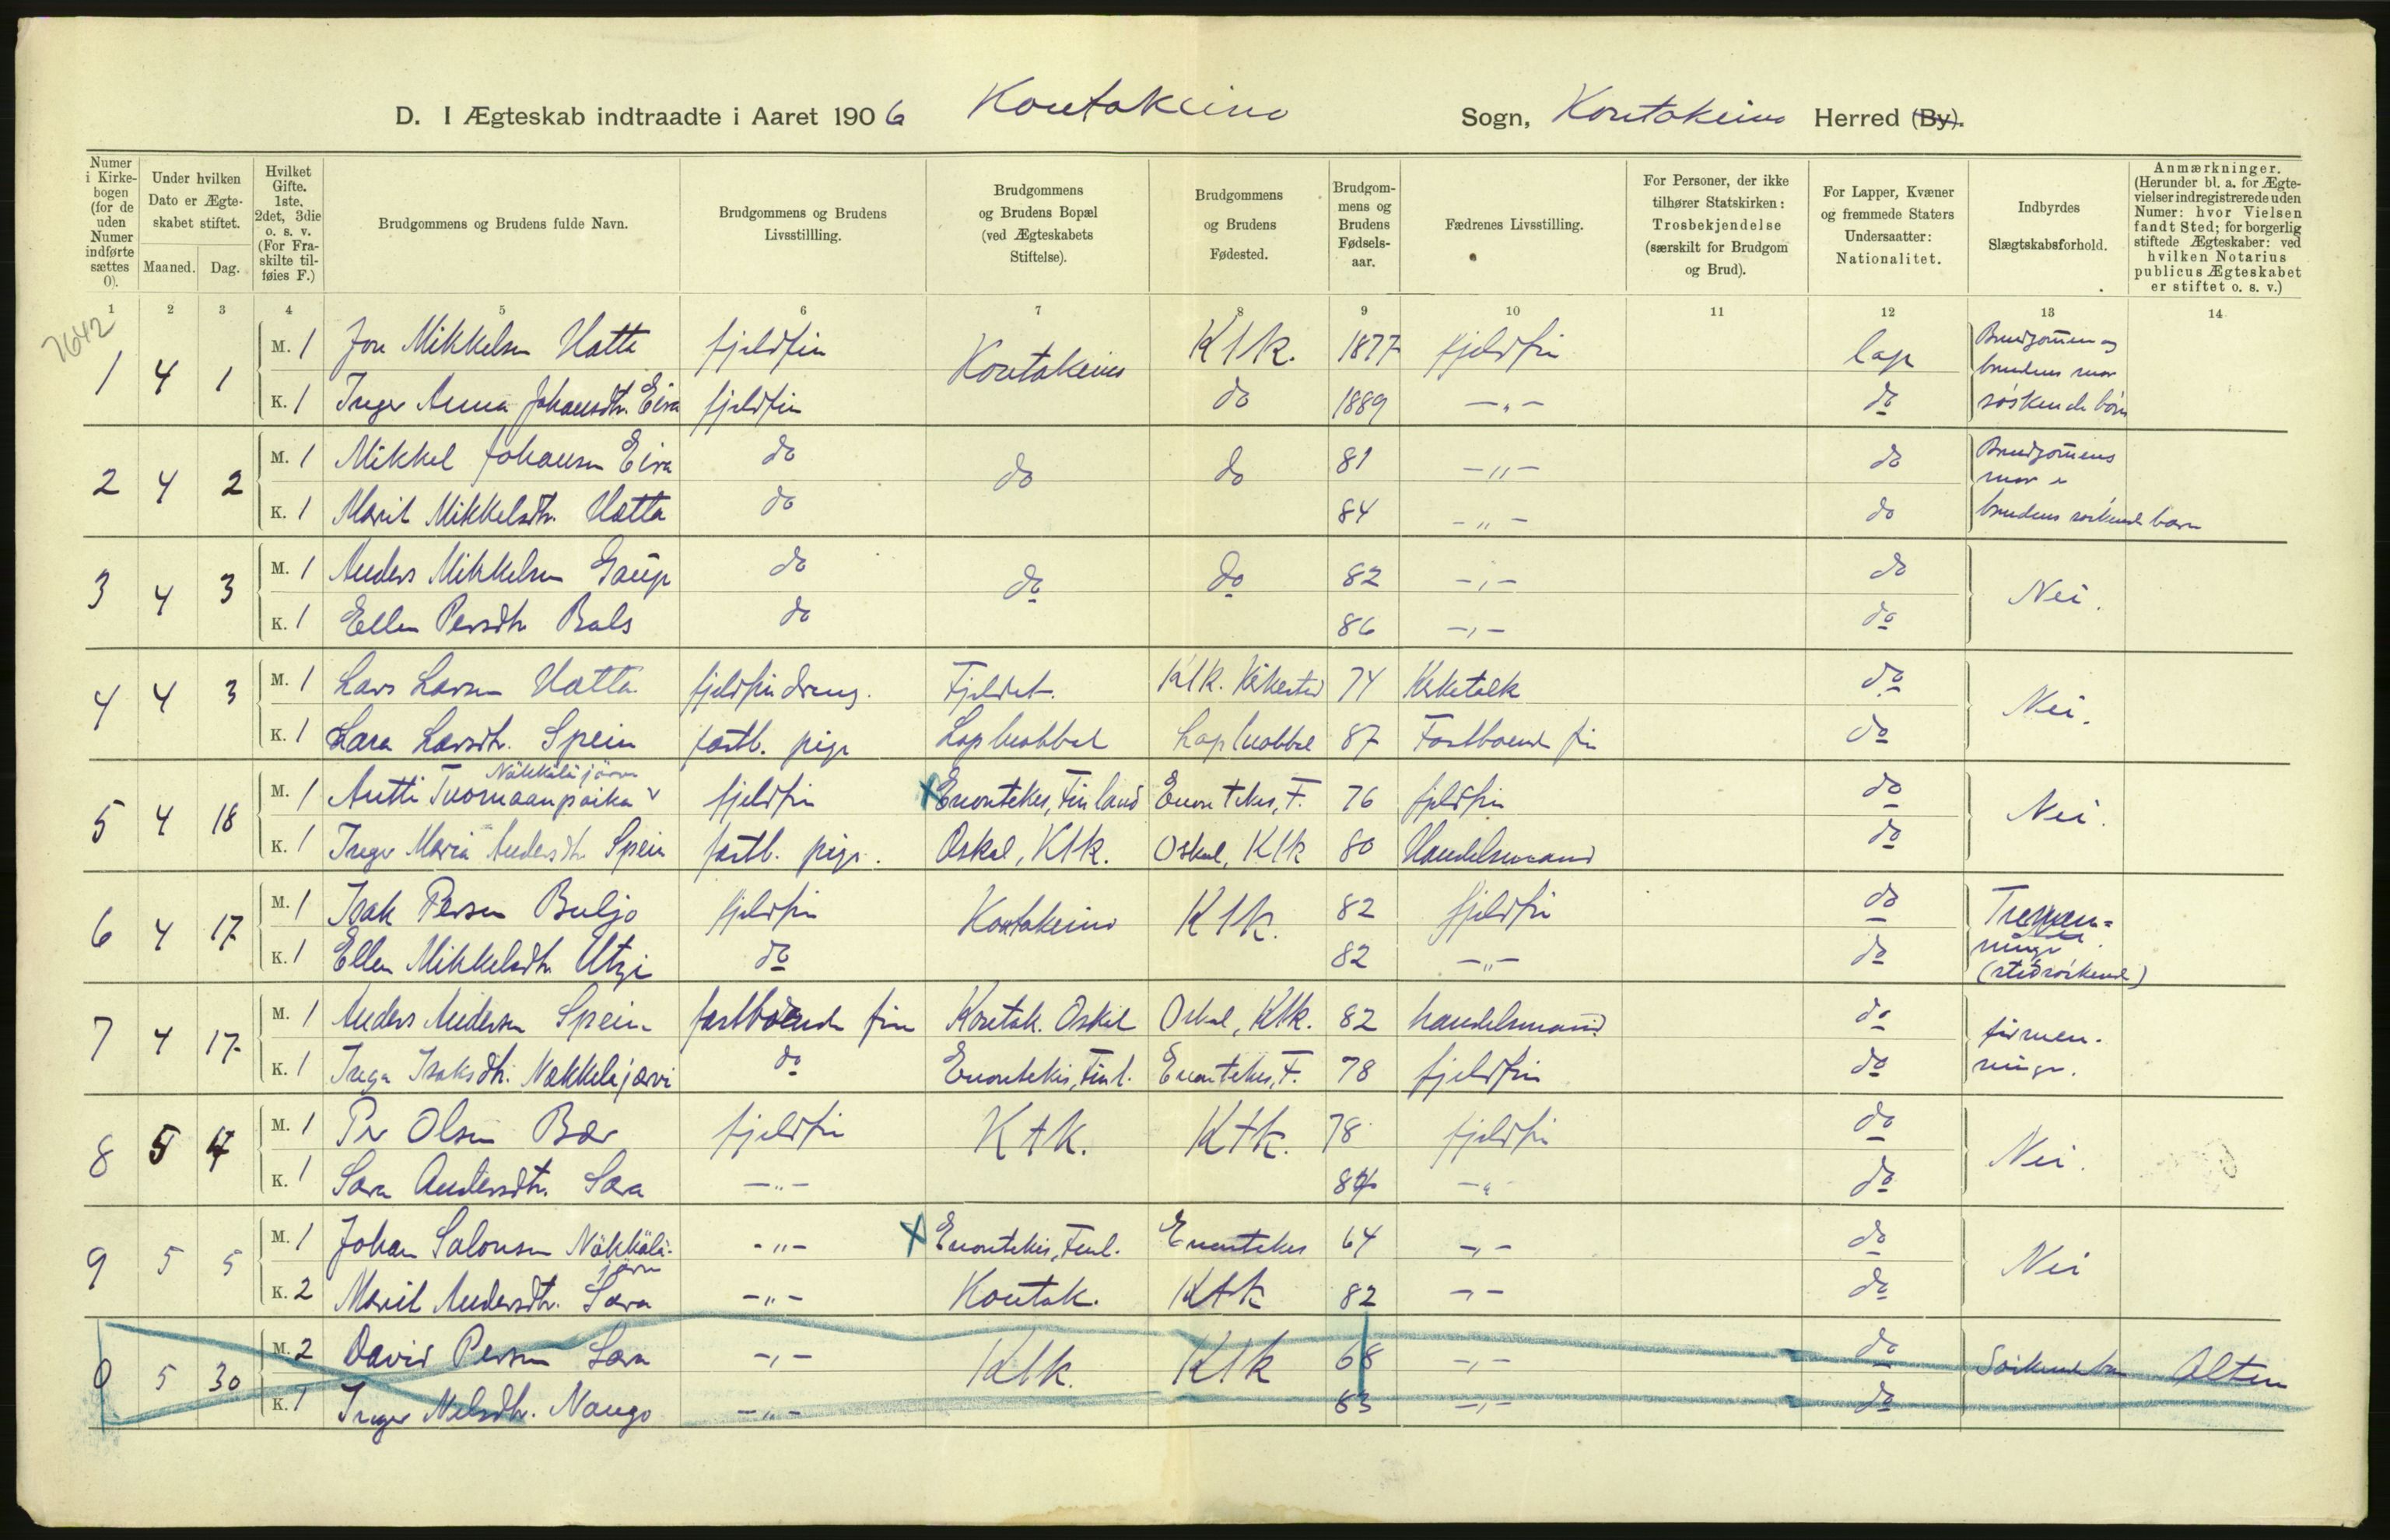 D. I Ægteskab indtraadte i Aaret 1906 Koutokeino Sogn, Koutokeino Herred (By).
Numer i Kirkebogen (for de uden Numer indførte sættes 0).
Under hvilken Dato er Ægteskabet stiftet.
Maaned. Dag.
Hvilket Gifte. 1ste. 2det, 3die o. s. v. (For Fraskilte tilføies F.)
Brudgommens og Brudens fulde Navn.
Brudgommens og Brudens Livsstillling.
Brudgommens og Brudens Bopæl (ved Ægteskabets Stiftelse).
Brudgommens og Brudens Fødested.
Brudgommens og Brudens Fødselsaar.
Fædrenes Livsstilling.
For Personer, der ikke tilhører Statskirken: Trosbekjendelse (særskilt for Brudgom og Brud).
For Lapper, Kvæner og fremmede Staters Undersaatter: Nationalitet.
Indbyrdes Slægtskabsforhold.
Anmærkninger. (Herunder bl. a. for Ægtevielser indregistrerede uden Numer: hvor Vielsen fandt Sted; for borgerlig stiftede Ægteskaber: ved hvilken Notarius publicus Ægteskabet er stiftet o. s. v.)
1 2 3 4 5 6 7 8 9 10 11 12 13 14
7642
1 4 1 M. 1 Jon Mikkelsen Hatta fjeldfin Koutokeino Ktk. 1877 fjeldfin lap Brudgommen og brudens mor søskendebørn
K. 1 Inger Anna Johansdtr. Eira fjeldfin do 1889 -"- do
2 4 2 M. 1 Mikkel Johansen Eira do do do 81 -"- do Brudgommens mor er brudens søskendebarn
K. 1 Marit Mikkelsdtr. Hatta do 84 -"- do
3 4 3 M. 1 Anders Mikkelsen Gaup do do do 82 -"- do Nei.
K. 1 Ellen Persdtr Bals do 86 -"- do
4 4 3 M. 1 Lars Larsen Hatta fjeldfindreng. Fjeldet. Ktk. Kirkested 74 Kirketolk do Nei.
K. 1 Sara Larsdtr. Spein fastb. pige Lapluobbal Lapluobbal 87 Fastboende fin do
Näkkäläjärvi
5 4 18 M. 1 Antti Tuomaanpoika fjeldfin x Enontekis, Finland Enontekis, F. 76 fjeldfin do Nei.
K. 1 Inger Maria Andersdtr Spein fastb. pige. Oskal, Ktk. Oskal, Ktk 80 Handelsmand do
6 4 17 M. 1 Isak Persen Buljo fjeldfin Koutokeino Ktk. 82 fjeldfin do Tremenninger (stedsøskende)
K. 1 Ellen Mikkelsdtr Utzi do 82 -"- do
7 4 17 M. 1 Anders Andersen Spein fastboende fin Koutok. Oskal Oskal, Ktk. 82 handelsmand do firmenninger.
K. 1 Inga Isaksdtr. Nakkelejærvi do Enontekis, Finl. Enontekis, F. 78 fjeldfin do
8 5 4 M. 1 Per Olsen Bær fjeldfin Ktk. Ktk. 78 fjeldfin do Nei.
K. 1 Sara Andersdtr. Sara -"- -"- do
9 5 5 M. 1 Johan Salonsen Näkkäläjärvi -"- x Enontekis, Finl. Enontekis 64 -"- do Nei
K. 2 Marit Andersdtr. Sara -"- Koutok. Ktk 82 -"- do
0 5 30 M. 2 David Persen Sara -"- Ktk. Ktk 68 -"- do Søskendebørn Alten
K. 1 Inger Nelsdtr. Nango -"- 83 -"- do